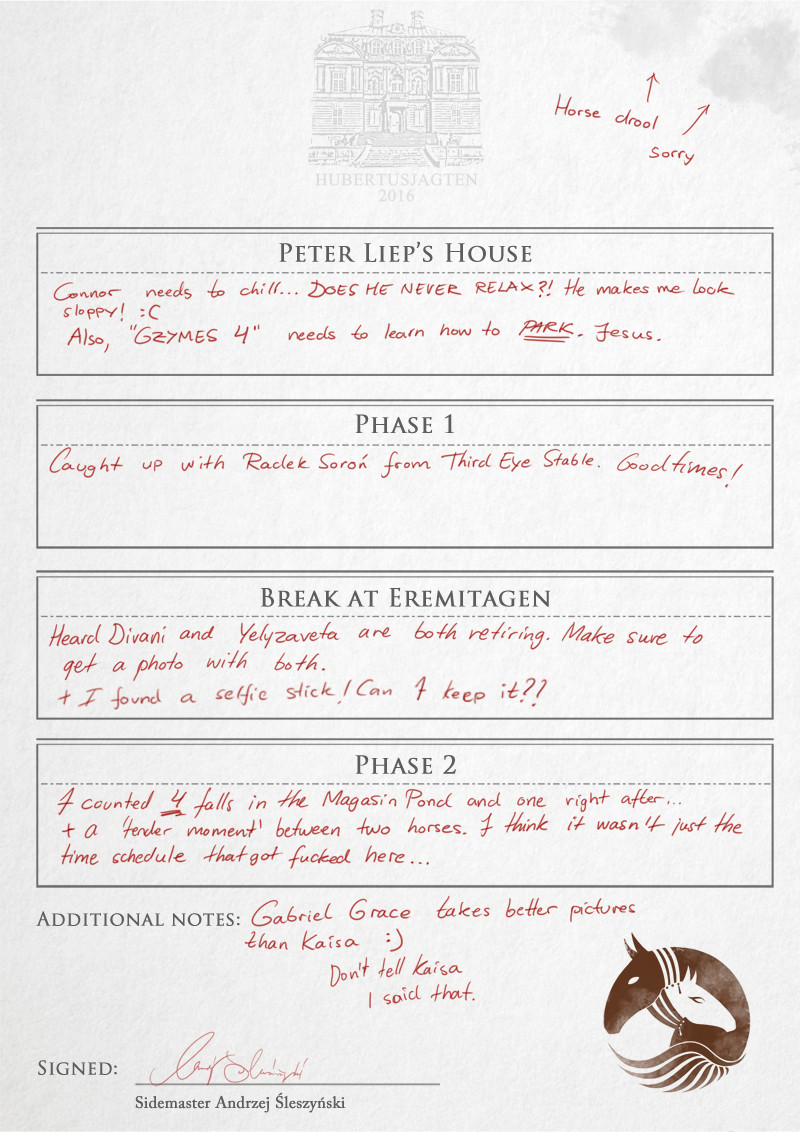 HUBERTUSJAGTEN
2016
Horse drool
Sorry
PETER LIEP'S HOUSE
Connor needs to chill... DOES HE NEVER RELAX?! He makes me look
sloppy! :C
Also, "GZYMES 4" needs to learn how to PARK. Jesus.
PHASE 1
Caught up with Radek Soroń from Third Eye Stable. Good times!
BREAK AT EREMITAGEN
Heard Divani and Yelyzaveta are both retiring. Make sure to
get a photo with both.
+ I found a selfie stick! Can I keep it??
PHASE 2
I counted 4 falls in the Magasin Pond and one right after...
+ a 'tender moment' between two horses. I think it wasn't just the
time schedule that got fucked here...
ADDITIONAL NOTES: Gabriel Grace takes better pictures
than Kaisa :)
Don't tell Kaisa
I said that.
SIGNED:
Sidemaster Andrzej Śleszyński